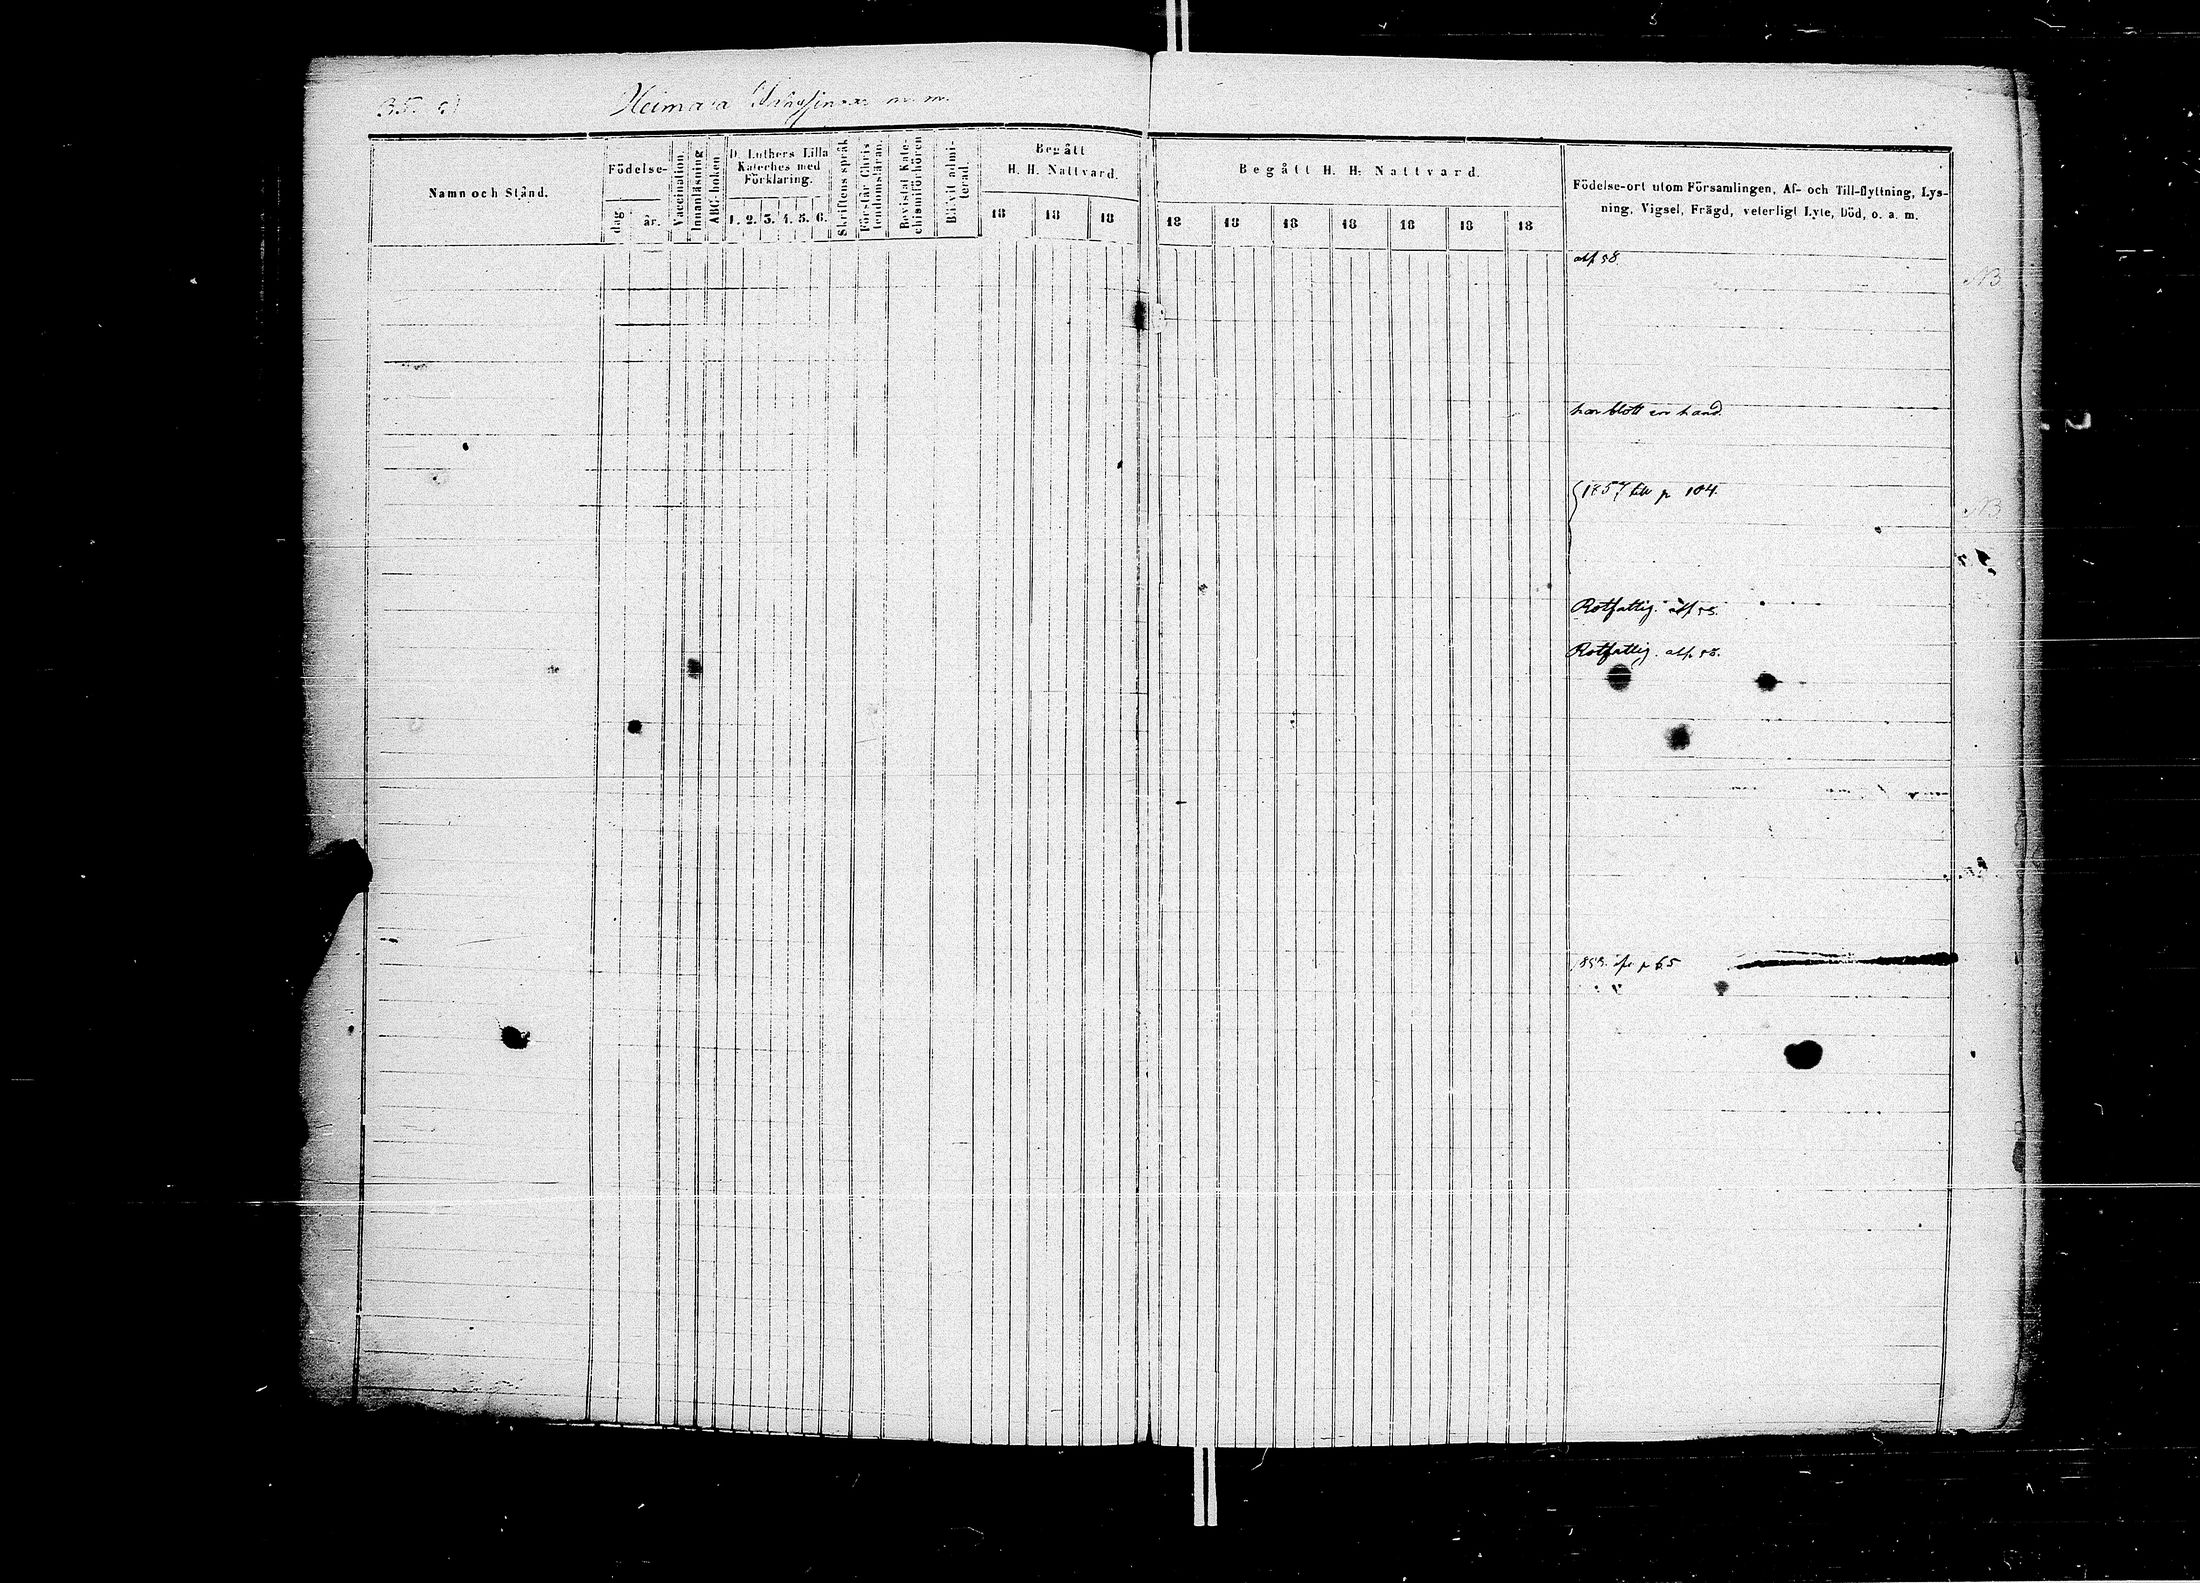 35.
Heimara
m. m.
Namn och Stånd.
Födelse-
dag.
år.
Vaccination.
Innanläsning
ABC-boken
D. Luthers Lilla
Kateches med
Förklaring.
1. 2. 3. 4. 5. 6.
Skriftens språk
Förstår Chris
tendomsläran.
Bevistat Kate-
chismiförhören
Blifvit admi-
terad.
Begått
H. H. Nattvard.
18 18 18
Begått H. H. Nattvard.
18 18 18 18 18 18 18
Födelse-ort utom Församlingen, Af- och Till-flyttning, Lys-
ning, Vigsel, Frägd, veterligt Lyte, Död, o. a. m.
abs 58.
NB
har blott en hand.
1857 till p 104.
NB
Rotfattig.
Rotfattig.
p 65